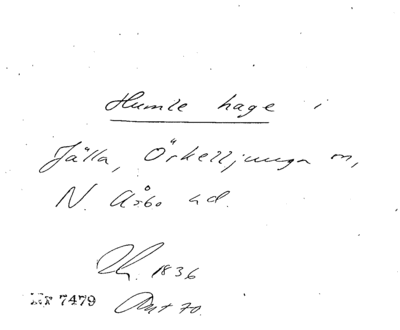 Humle hage i
Jälla, Örkelljunga sn,
N. Åsbo hd.
1836
7479